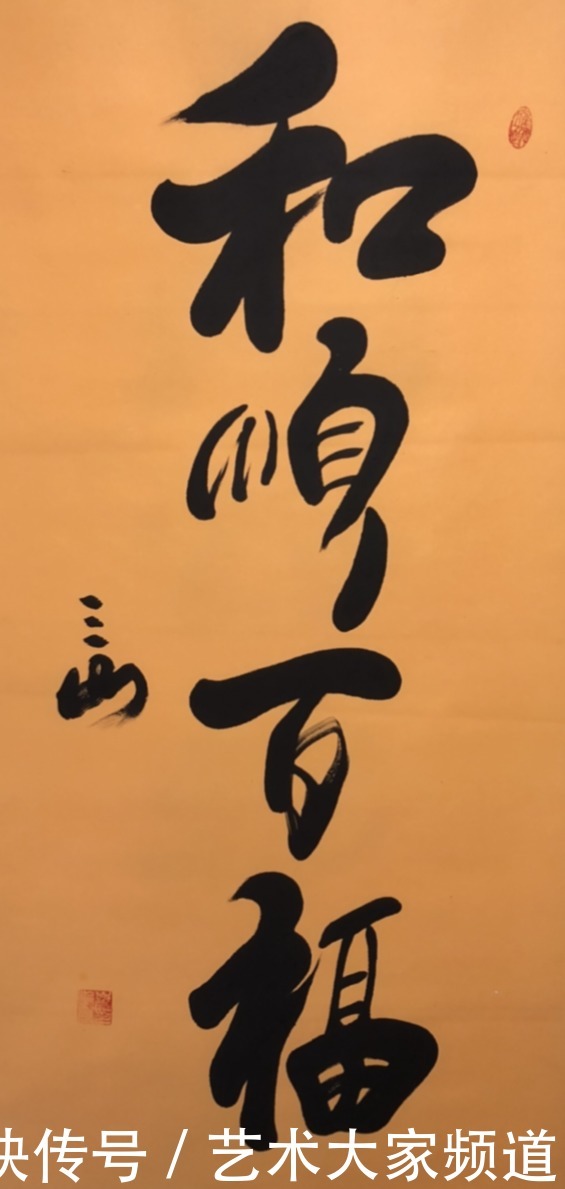 和順百福
三山
快传号 / 艺术大家频道